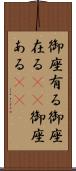 御座有る御座
在る御座
ある